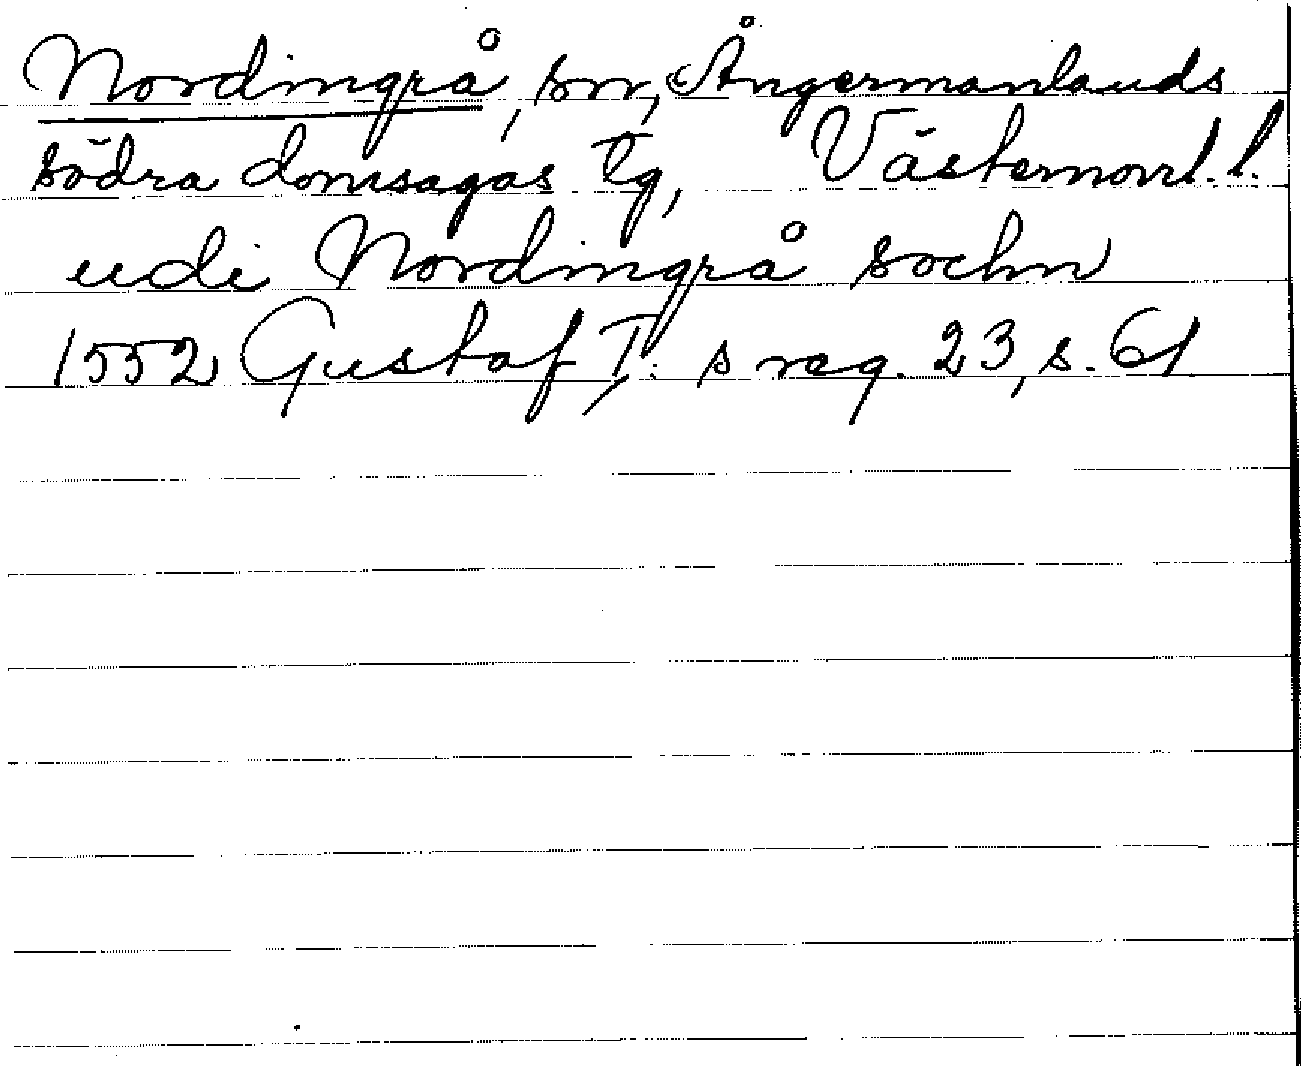 Nordingrå, sn, Ångermanlands
södra domsagas tg, Västernorrl. l.
udi Nordingrå sochn
1552 Gustaf I: s reg. 23, s. 61